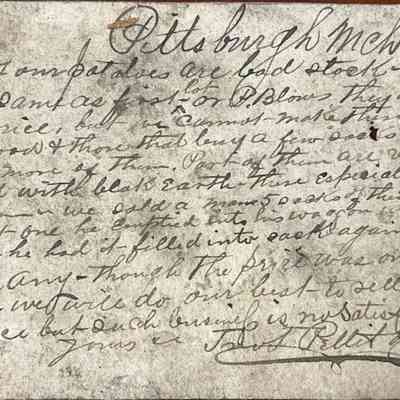 Pittsburgh Mch
our potatoes are bad stock
same as first lot or P. Blows they
rice, but we cannot make them
good & those that buy a few sacks
more of them. Part of them are
with black Earth these especial
we sold a man 5 sacks of this
one he emptied into his waggon
he had it filled into sacks again
any - though the price was on
we will do our best to sell
but such business is no satis
Yours